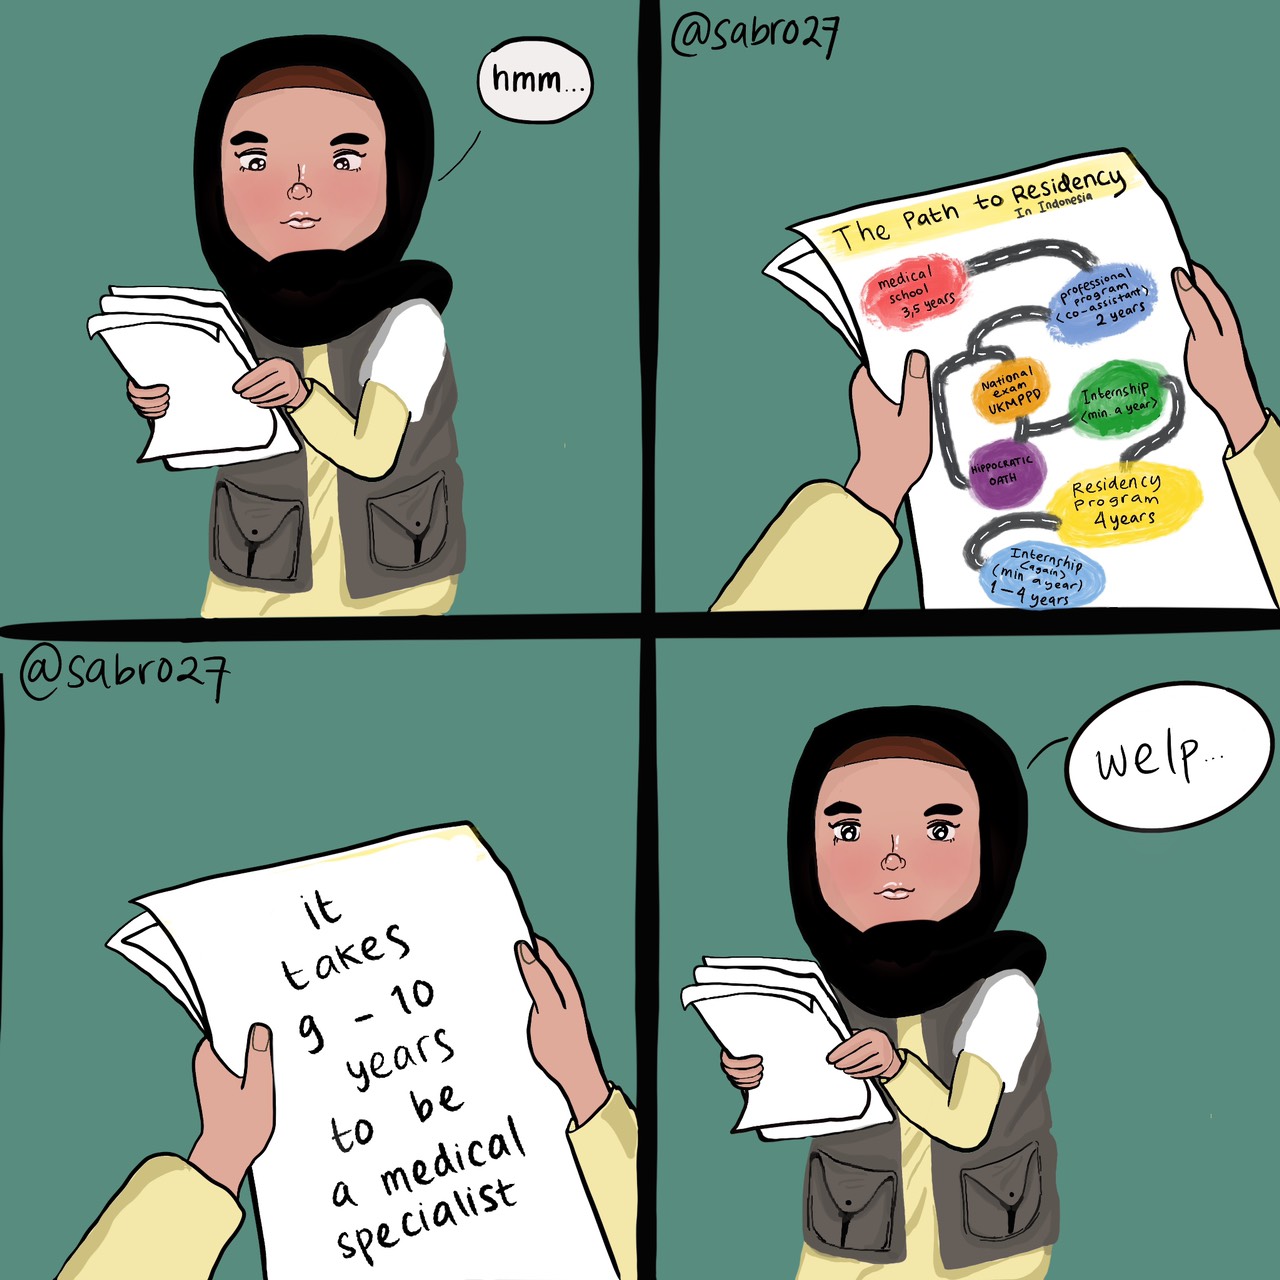 hmm...
@sabro27
The Path to Residency
In Indonesia
medical
school
3,5 years
professional
program
(co-assistant)
2 years
National
exam
UKMPPD
Internship
(min. a year)
HIPPOCRATIC
OATH
Residency
Program
4 years
Internship
(again)
(min a year)
1-4 years
@sabro27
it
takes
9 - 10
years
to be
a medical
specialist
welp...